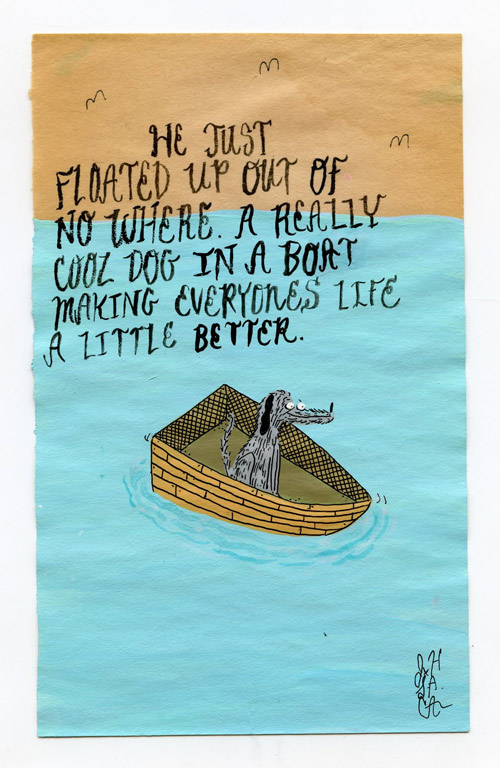 HE JUST
FLOATED UP OUT OF
NO WHERE. A REALLY
COOL DOG IN A BOAT
MAKING EVERYONES LIFE
A LITTLE BETTER.